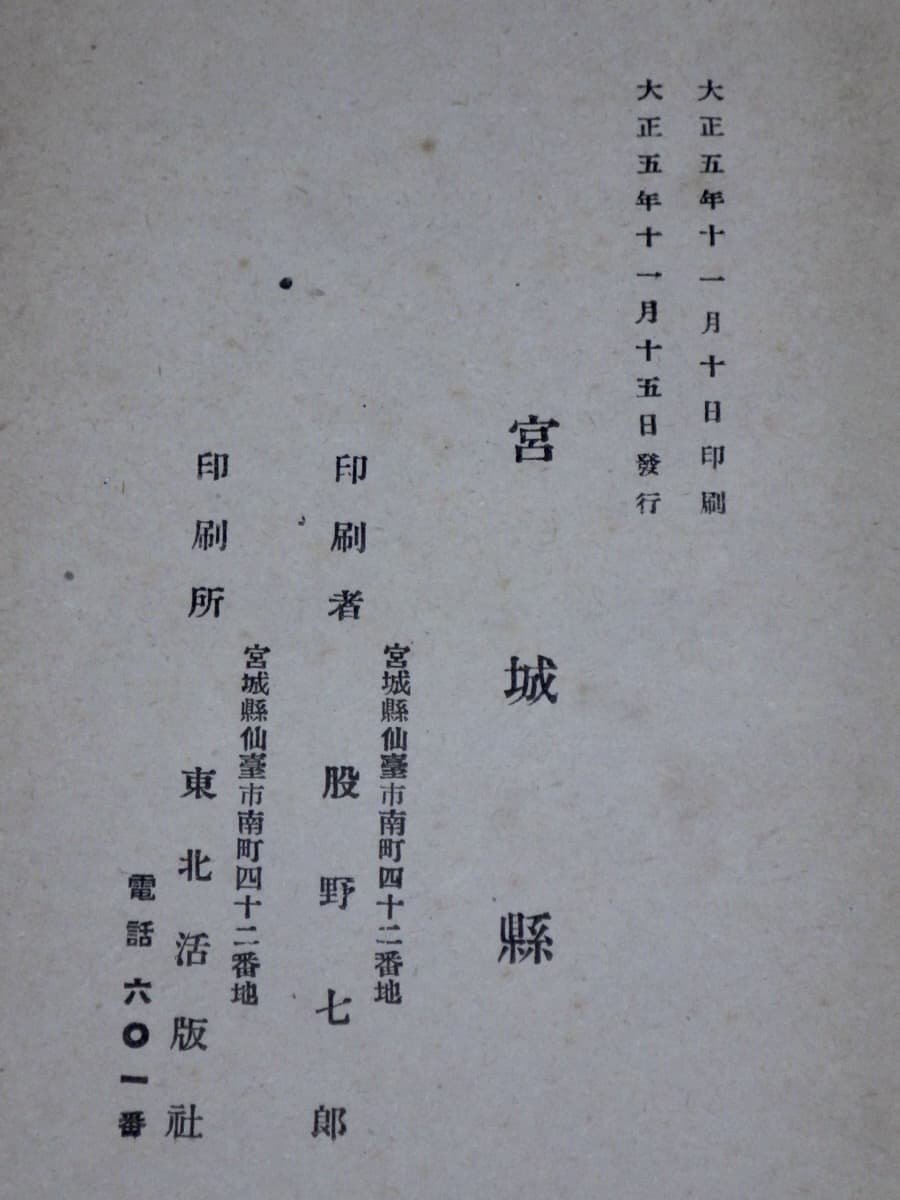 大正五年十一月十日印刷
大正五年十一月十五日發行
宮城縣
宮城縣仙臺市南町四十二番地
印刷者 股野七郎
宮城縣仙臺市南町四十二番地
印刷所 東北活版社
電話六〇一番